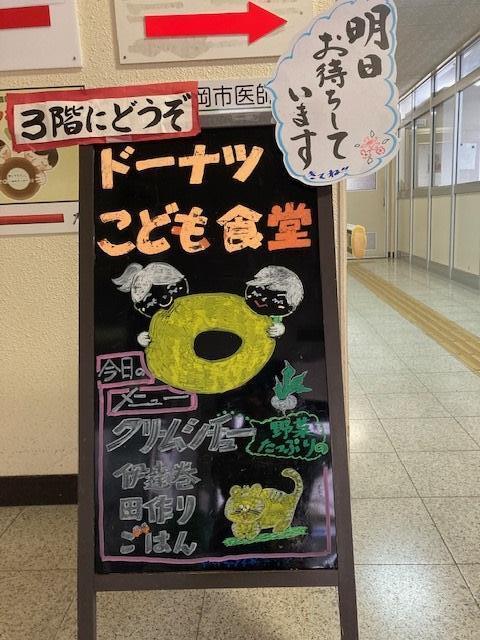 明日
お待ちして
います
3階にどうぞ
岡市医師
ドーナツ
こども食堂
今日の
メニュー
クリームシチュー
野菜
たっぷりの
伊達巻
田作り
ごはん